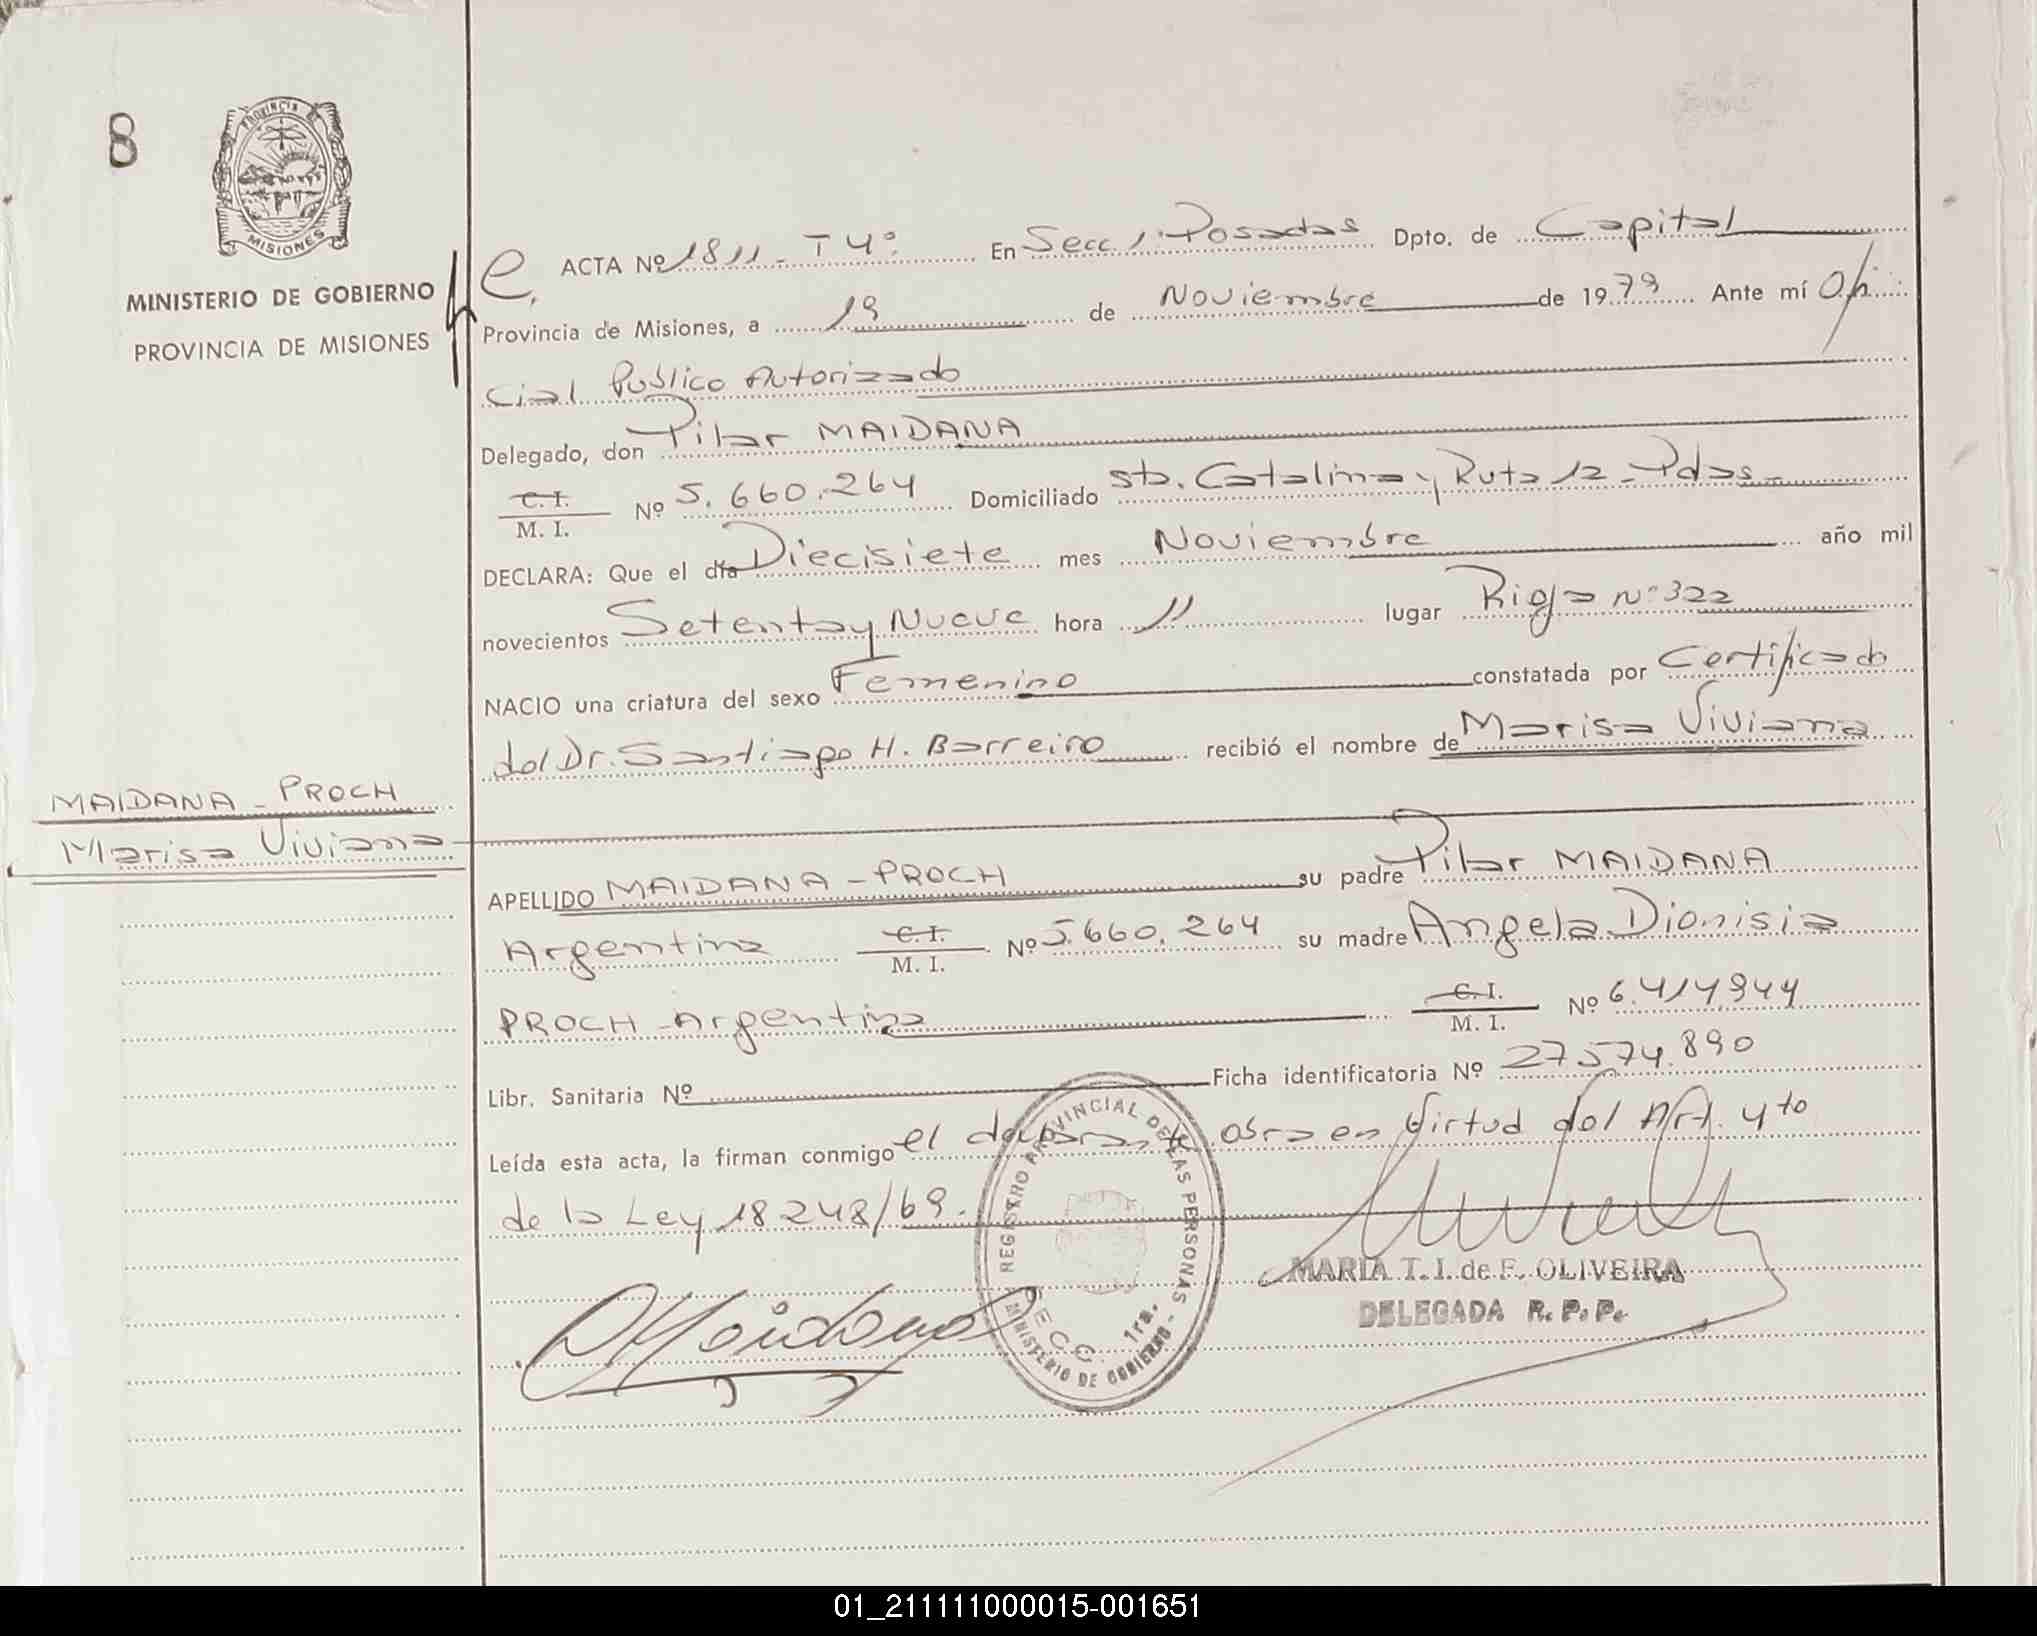 8
PROVINCIA
MISIONES
MINISTERIO DE GOBIERNO
PROVINCIA DE MISIONES
ACTA Nº 1811 - T 4º. En Secc. 1ª Posadas Dpto. de Capital
Provincia de Misiones, a 19 de Noviembre de 1979 Ante mí Ofi
cial Publico Autorizado
Delegado, don Pilar MAIDANA
C.I. M. I. Nº 5.660.264 Domiciliado Sta. Catalina y Ruta 12 - Pdas -
DECLARA: Que el día Diecisiete mes Noviembre año mil
novecientos Setenta y Nueve hora 11 lugar Rioja Nº 322
NACIO una criatura del sexo Femenino constatada por Certificado
del Dr. Santiago H. Barreiro recibió el nombre de Marisa Viviana
MAIDANA - PROCH
Marisa Viviana
APELLIDO MAIDANA - PROCH su padre Pilar MAIDANA
Argentina C.I. M. I. Nº 5.660.264 su madre Angela Dionisia
PROCH - Argentina C.I. M. I. Nº 6.414.944
Libr. Sanitaria Nº Ficha identificatoria Nº 27574.890
Leída esta acta, la firman conmigo el declarante obra en Virtud del Art. 4to
de la Ley 18248/69.
REGISTRO PROVINCIAL DE LAS PERSONAS - MINISTERIO DE GOBIERNO -
SECC. 1ra.
MARIA T. I. de F. OLIVEIRA
DELEGADA R. P. P.
Maidana
01_211111000015-001651